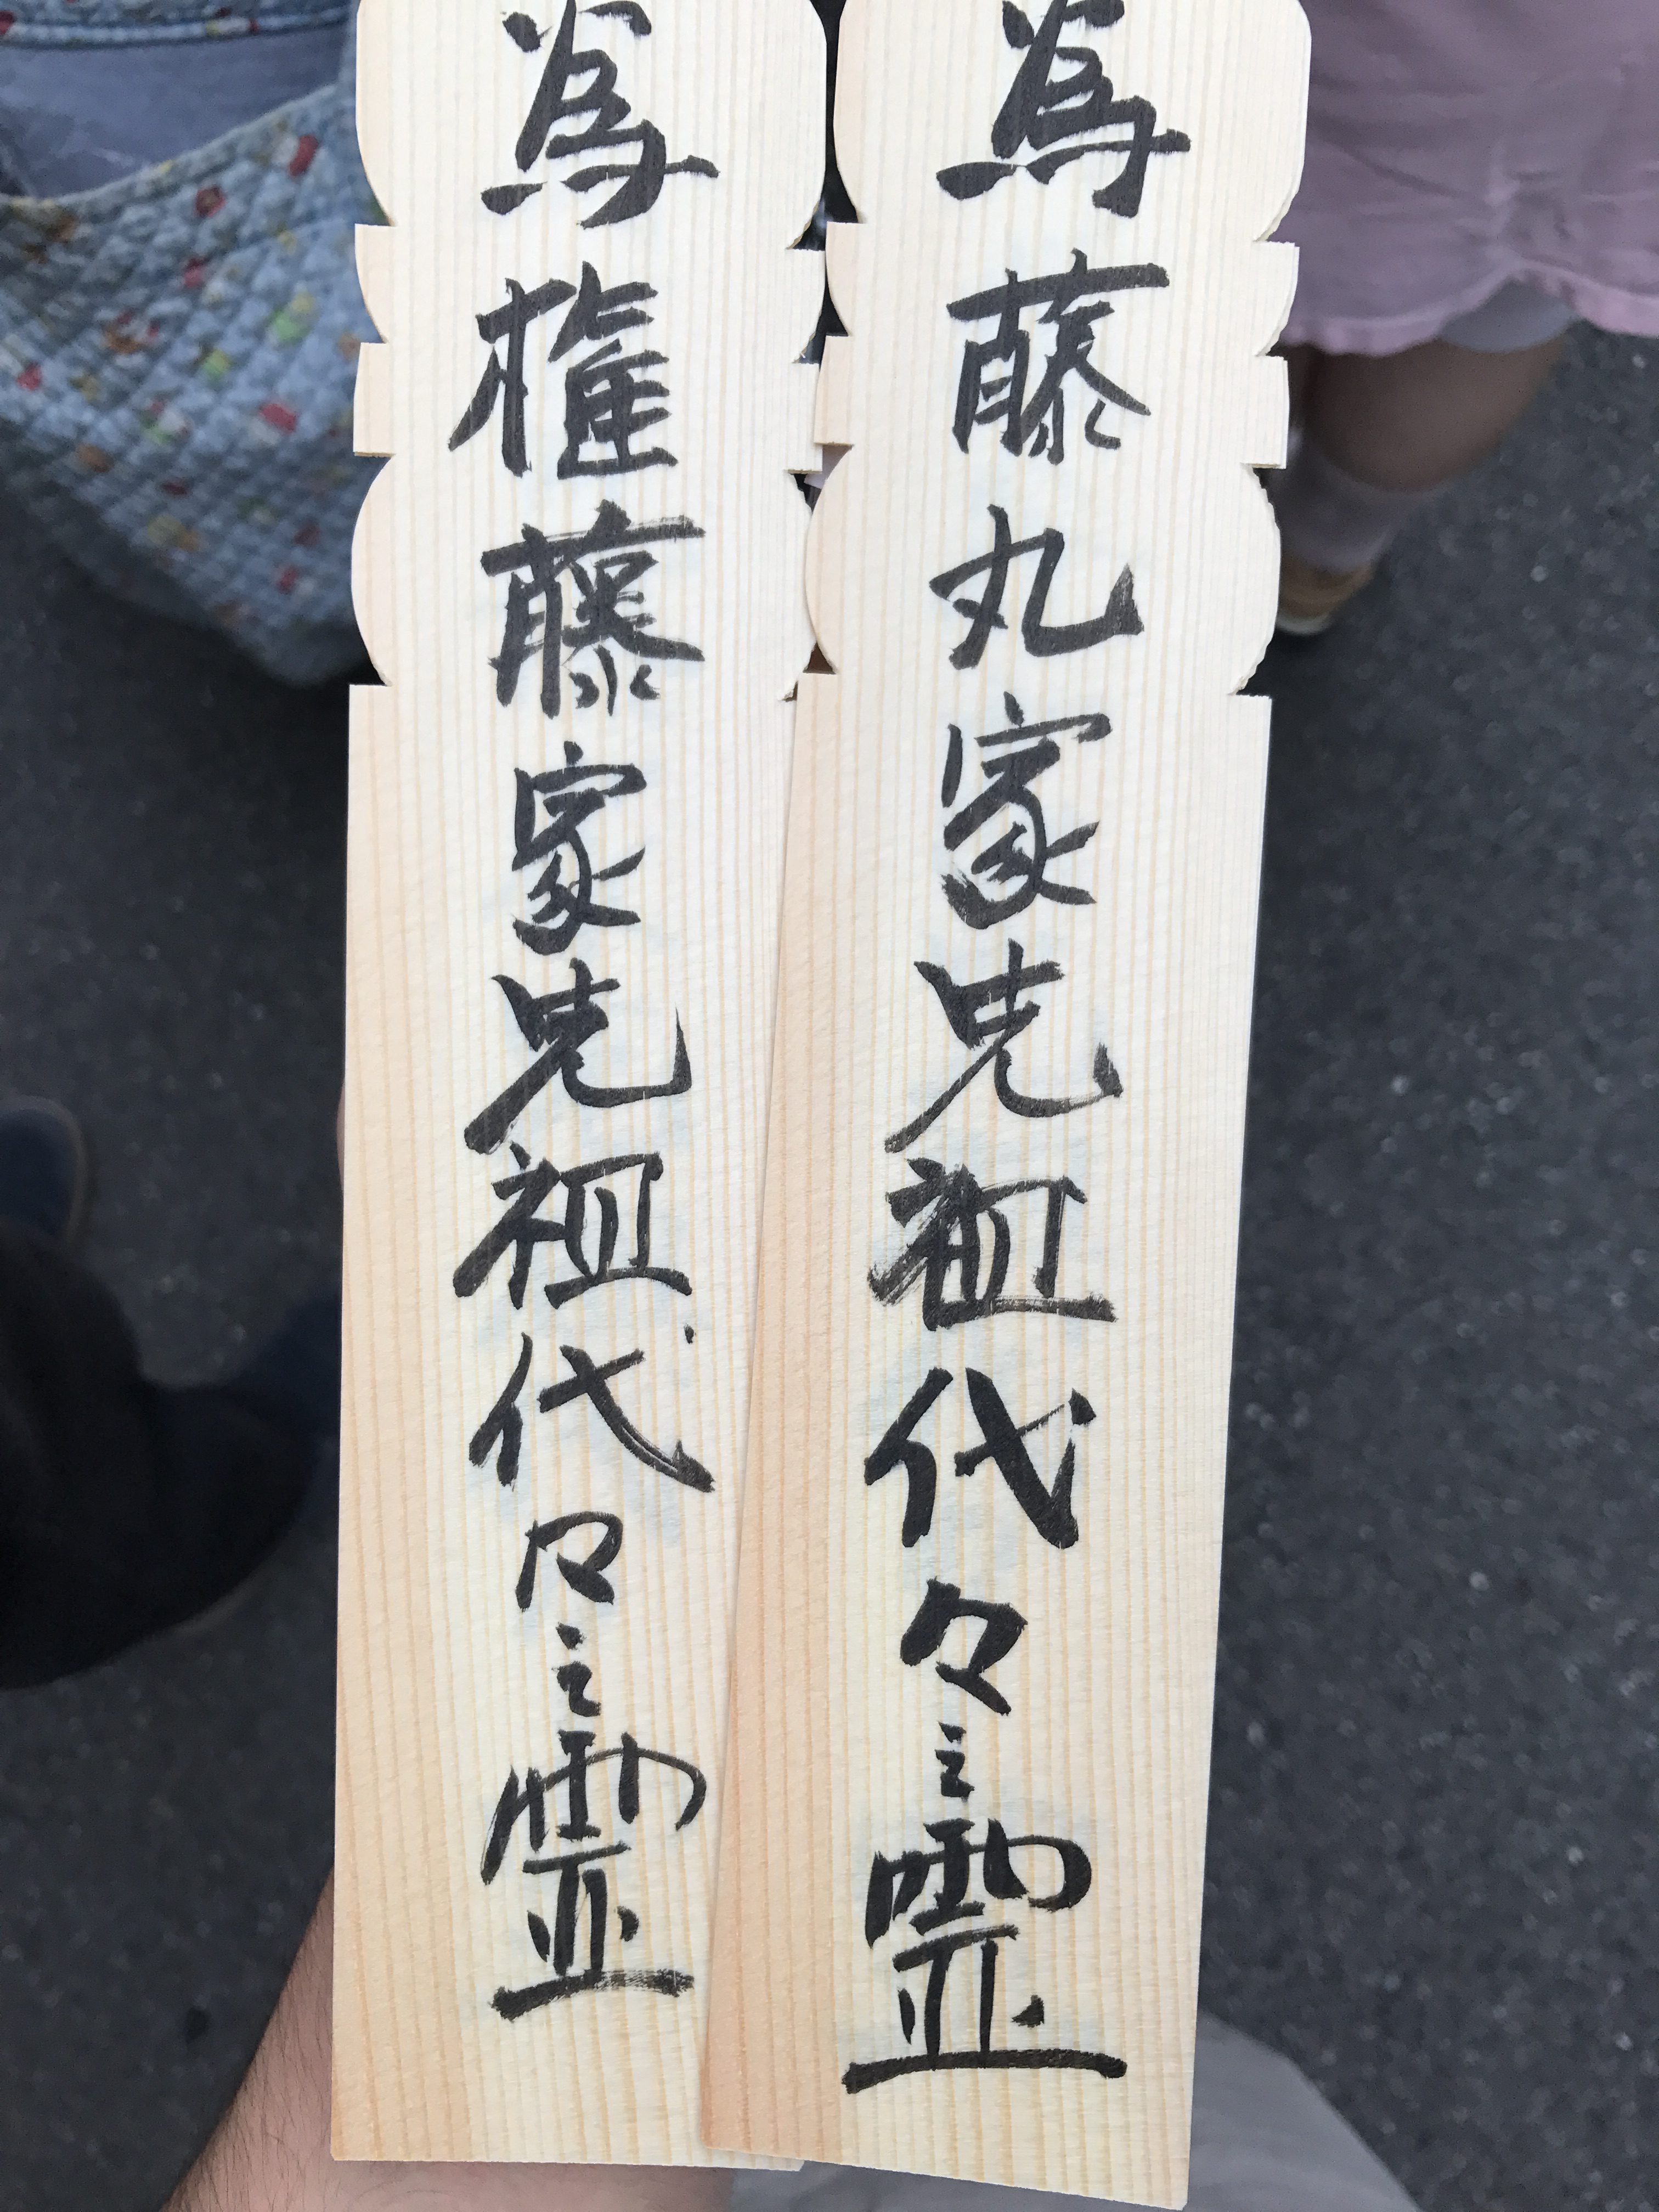 為藤丸家先祖代々之霊
為権藤家先祖代々之霊